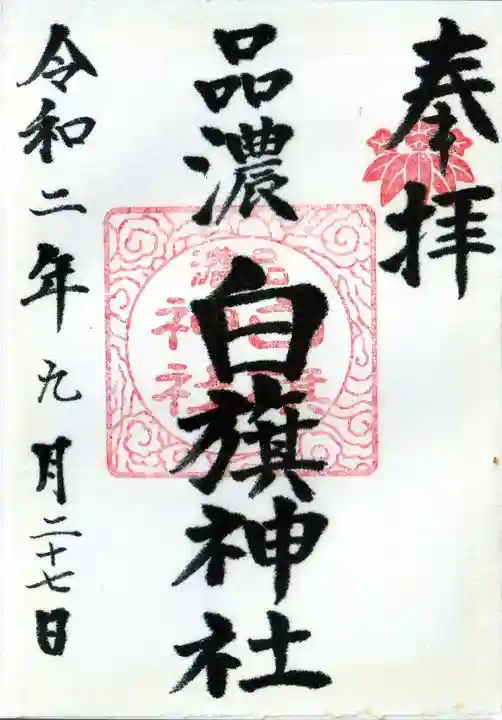 奉拝
品濃
白旗神社
令和二年九月二十七日
品濃
白旗
神社